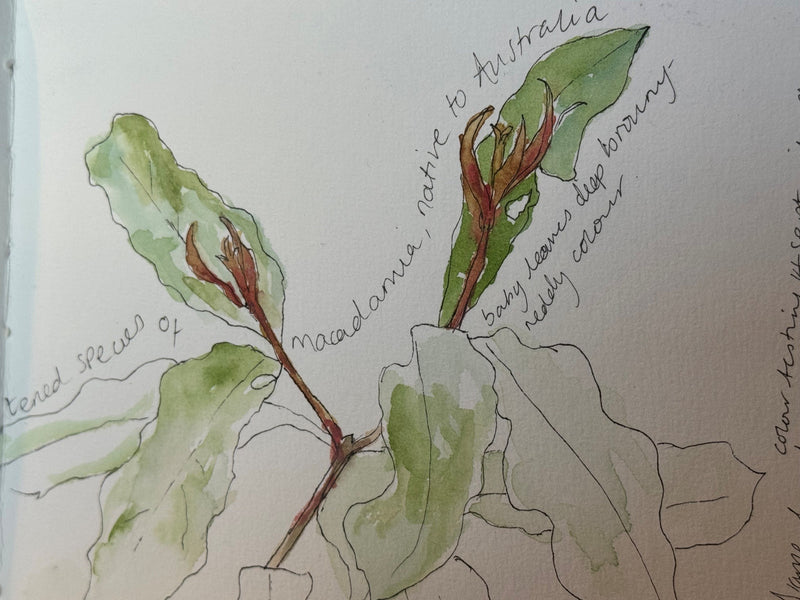 tened species of
macadamia, native to Australia
baby leaves deep browny-
reddy colour
colour testing